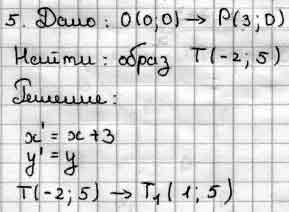 5. Дано: O(0;0) → P(3;0)
Найти: образ T(-2;5)
Решение:
x' = x+3
y' = y
T(-2;5) → T₁(1;5)